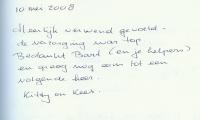 10 mei 2008
Heerlijk verwend gevoeld -
de verzorging was top
Bedankt Bart (en je helpers)
en graag nog een tot een
volgende keer.
Kitty en Kees.